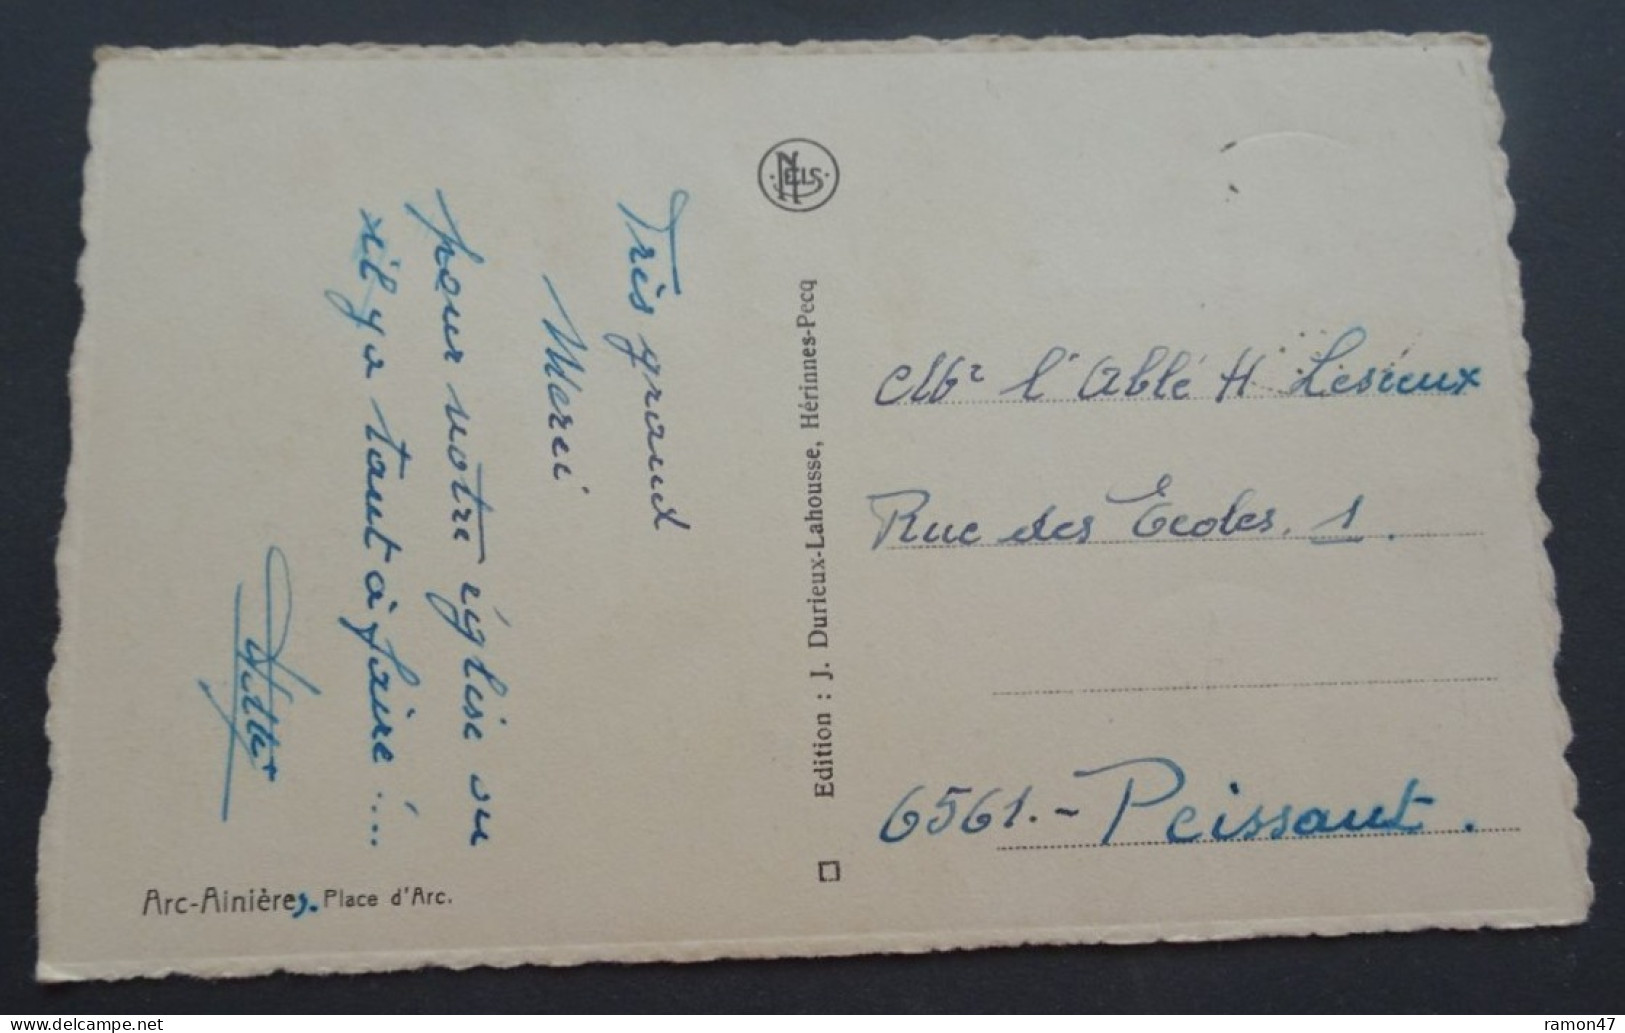 Très grand
Merci
pour notre église où
il y a tant à faire !...
NELS
Edition : J. Durieux-Lahousse, Hérinnes-Pecq
Mr l'Abbé H. Lesieux
Rue des Ecoles, 1.
6561.- Peissant.
Arc-Ainières. Place d'Arc.
delcampe.net
ramon47